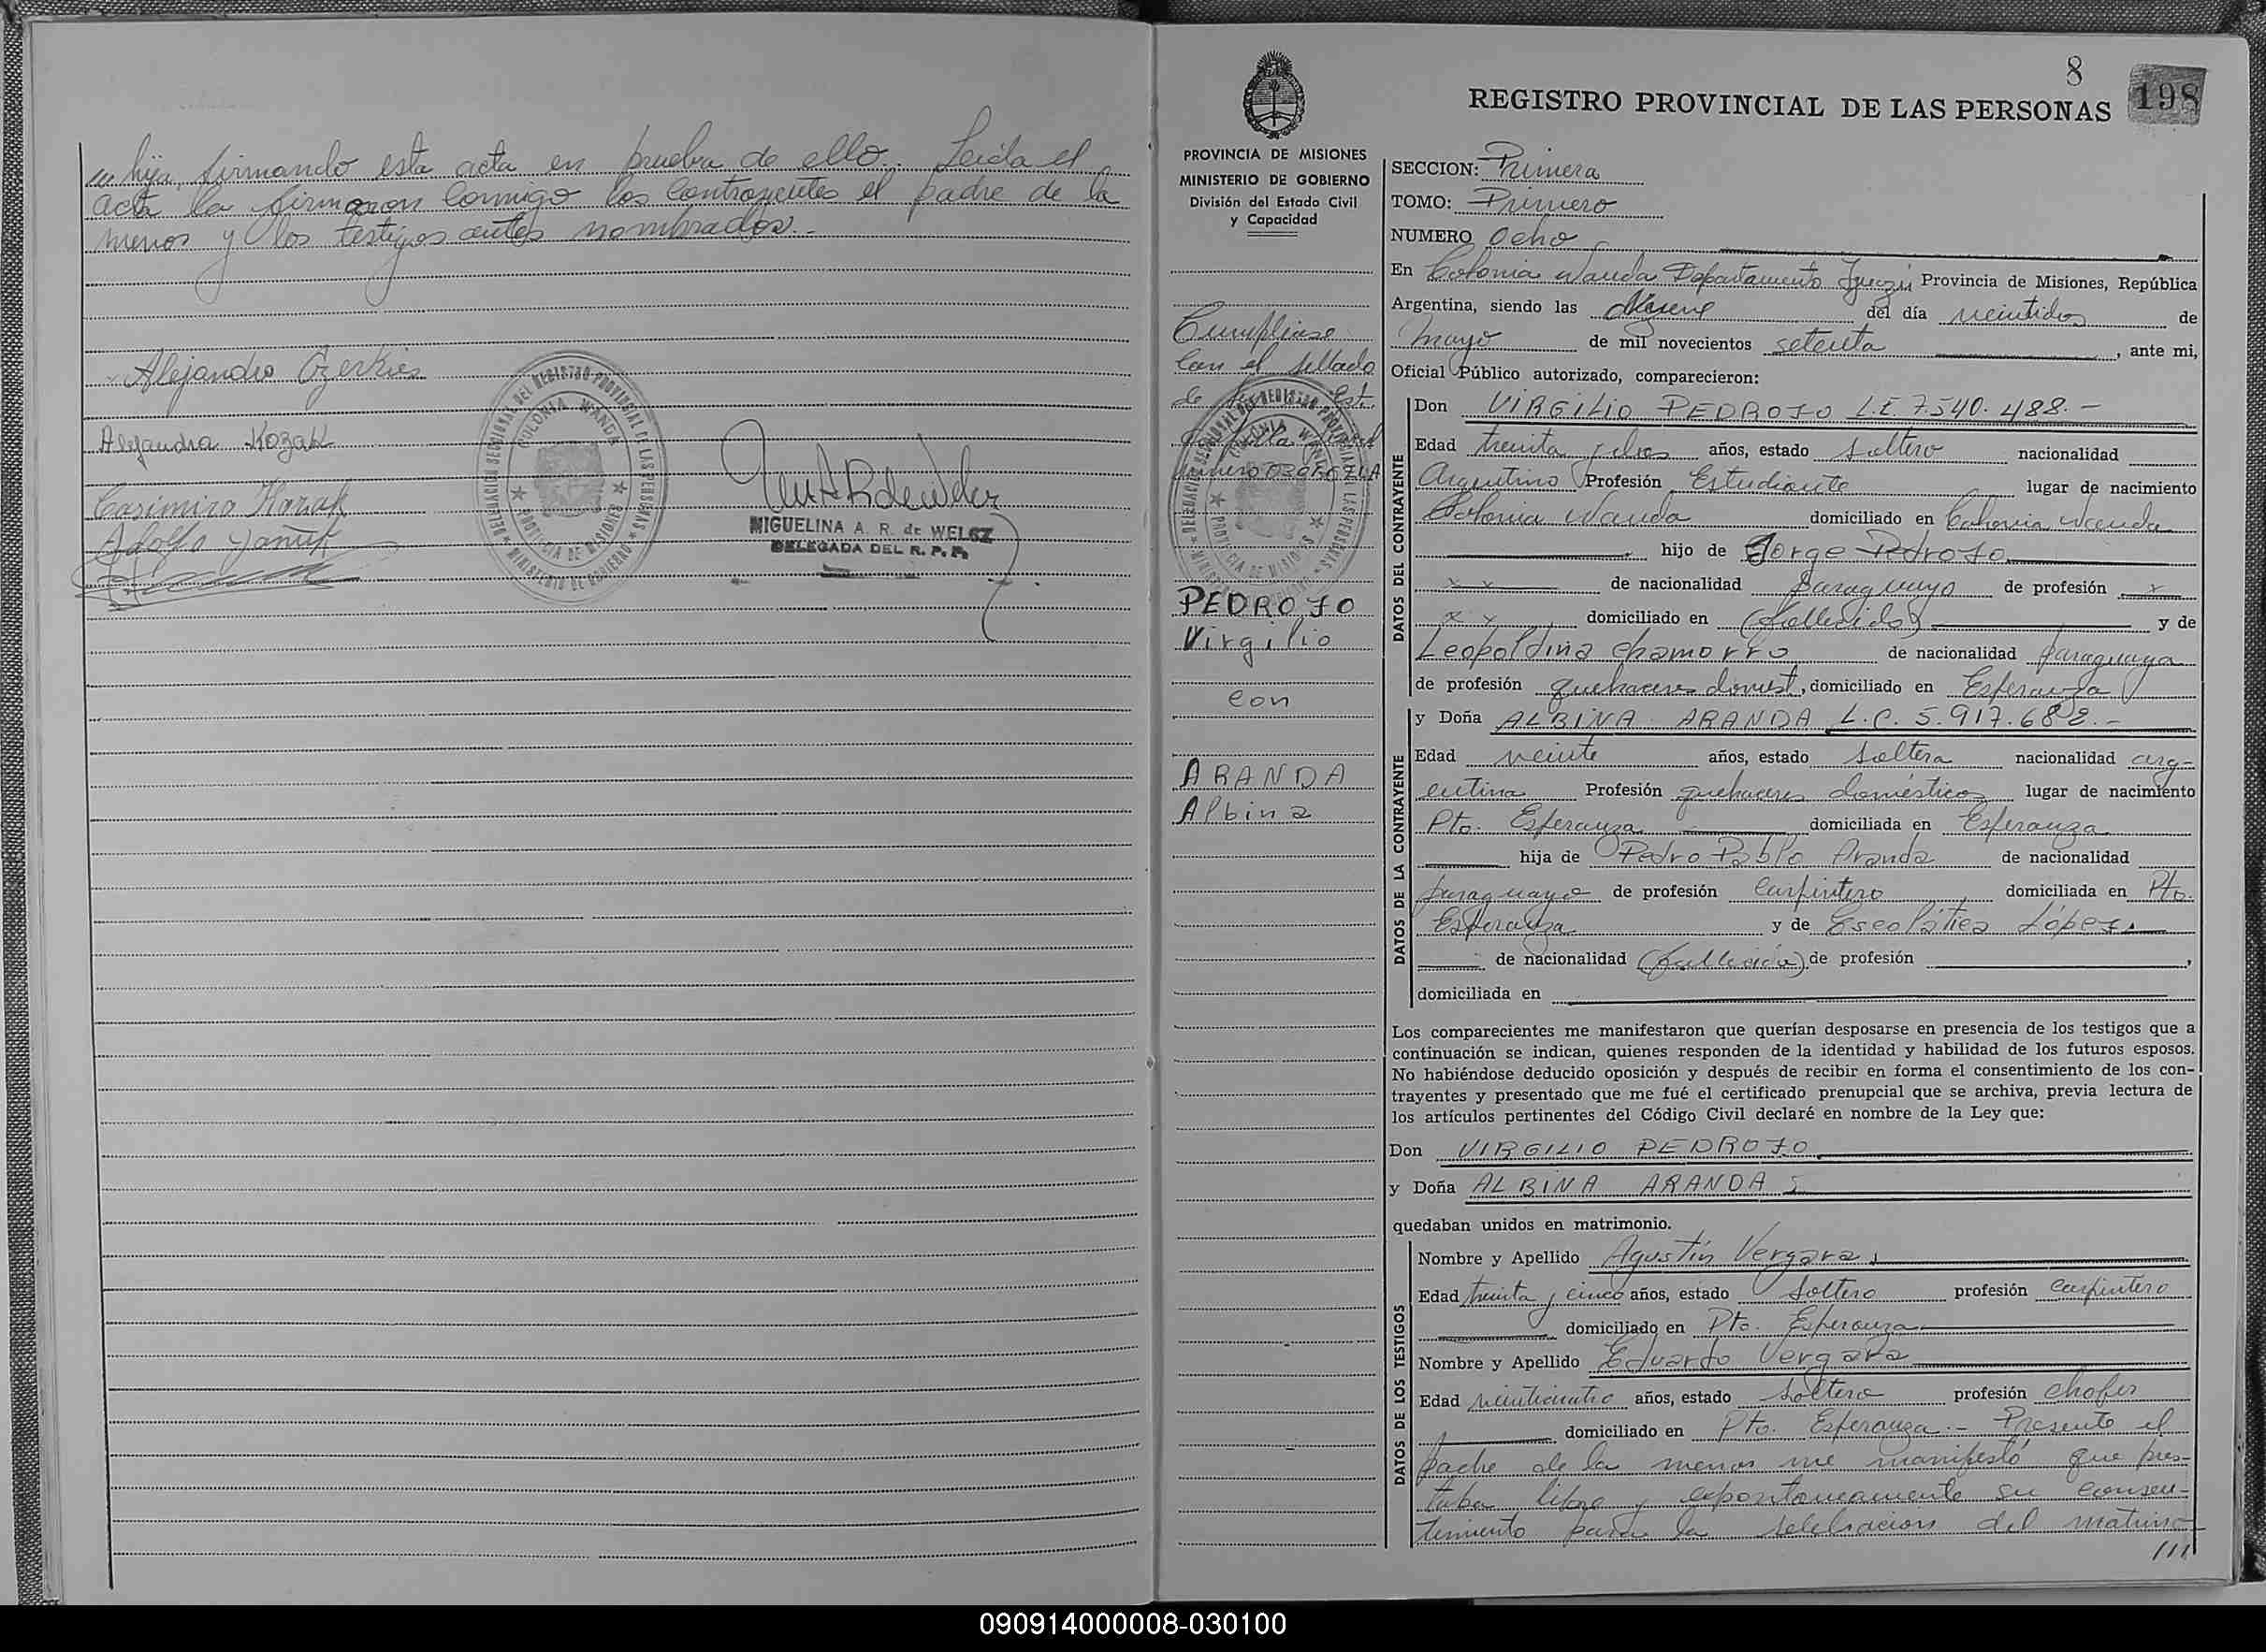 su hija, firmando esta acta en prueba de ello. Leida el
acta la firmaron conmigo los contrayentes el padre de la
menor y los testigos antes nombrados.-
Alejandro Czerkies
Alejandra Kozak
Casimiro Kozak
Adolfo Yañuk
DELEGACION SECCIONAL DEL REGISTRO PROVINCIAL DE LAS PERSONAS
COLONIA WANDA
PROVINCIA DE MISIONES
MINISTERIO DE GOBIERNO
MIGUELINA A. R. de WELCZ
DELEGADA DEL R. P. P.
8
198
REGISTRO PROVINCIAL DE LAS PERSONAS
PROVINCIA DE MISIONES
MINISTERIO DE GOBIERNO
División del Estado Civil
y Capacidad
Cumpliose
con el sellado
de
PEDROZO
Virgilio
con
ARANDA
Albina
SECCION: Primera
TOMO: Primero
NUMERO Ocho
En Colonia Wanda Departamento Iguazú Provincia de Misiones, República
Argentina, siendo las del día veintidos de
mayo de mil novecientos setenta, ante mi,
Oficial Público autorizado, comparecieron:
DATOS DEL CONTRAYENTE
Don VIRGILIO PEDROZO L.E. 7.540.488.-
Edad treinta y dos años, estado soltero nacionalidad
Argentino Profesión Estudiante lugar de nacimiento
Colonia Wanda domiciliado en Colonia Wanda
hijo de Jorge Pedrozo
x x de nacionalidad paraguayo de profesión x
x x domiciliado en (fallecido) y de
Leopoldina Chamorro de nacionalidad paraguaya
de profesión quehaceres domest, domiciliado en Esperanza
DATOS DE LA CONTRAYENTE
y Doña ALBINA ARANDA L.C. 5.917.682.-
Edad veinte años, estado soltera nacionalidad arg-
entina Profesión quehaceres domésticos lugar de nacimiento
Pto. Esperanza domiciliada en Esperanza
hija de Pedro Pablo Aranda de nacionalidad
paraguayo de profesión Carpintero domiciliada en Pto.
Esperanza y de Escolástica López
de nacionalidad (fallecida) de profesión ,
domiciliada en
Los comparecientes me manifestaron que querían desposarse en presencia de los testigos que a
continuación se indican, quienes responden de la identidad y habilidad de los futuros esposos.
No habiéndose deducido oposición y después de recibir en forma el consentimiento de los con-
trayentes y presentado que me fué el certificado prenupcial que se archiva, previa lectura de
los artículos pertinentes del Código Civil declaré en nombre de la Ley que:
Don VIRGILIO PEDROZO
y Doña ALBINA ARANDA
quedaban unidos en matrimonio.
DATOS DE LOS TESTIGOS
Nombre y Apellido Agustín Vergara
Edad treinta y cinco años, estado soltero profesión carpintero
domiciliado en Pto. Esperanza
Nombre y Apellido Eduardo Vergara
Edad veinticuatro años, estado soltero profesión chofer
domiciliado en Pto. Esperanza.- Presente el
padre de la menor me manifestó que pres-
taba libre y espontaneamente su consen-
timiento para la selebracion del matrimo-
///
090914000008-030100